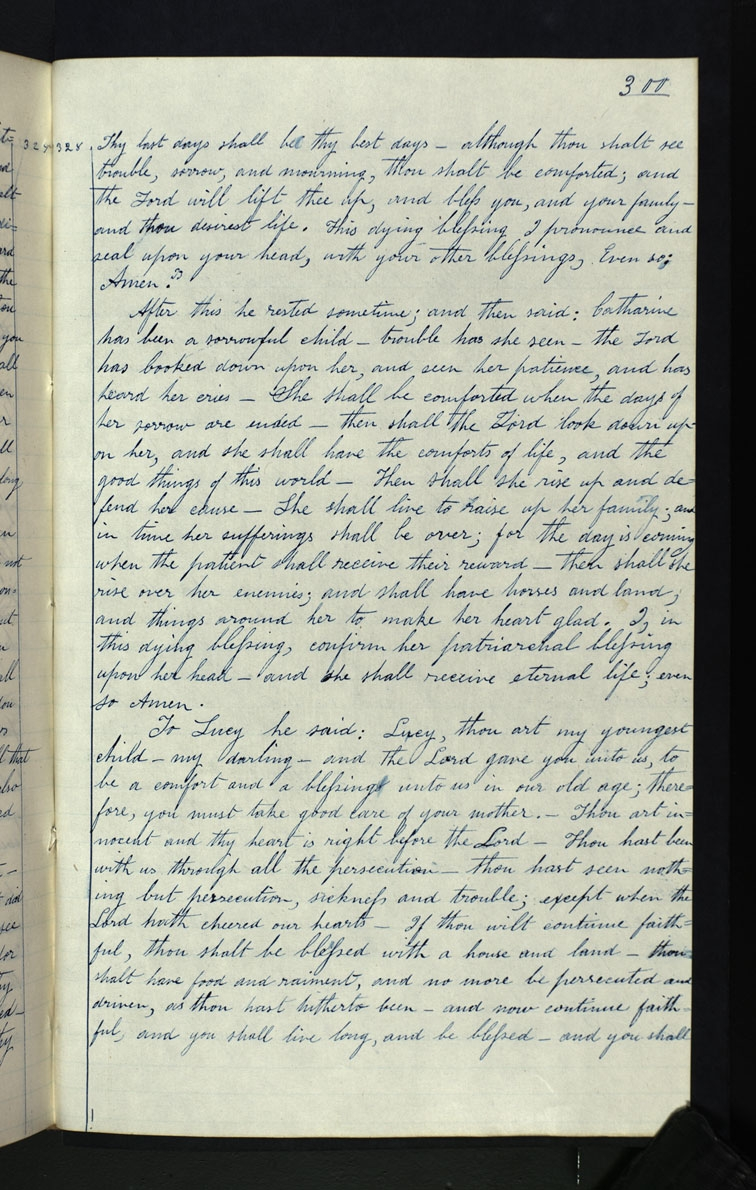 300
328 328. Thy last days shall be thy best days – although thou shalt see
trouble, sorrow, and mourning, thou shalt be comforted; and
the Lord will lift thee up, and bless you, and your family –
and thou desirest life. This dying blessing I pronounce and
seal upon your head, with your other blessings, Even so;
Amen."
After this he rested sometime; and then said: Catharine
has been a sorrowful child – trouble has she seen – the Lord
has looked down upon her, and seen her patience, and has
heard her cries – She shall be comforted when the days of
her sorrow are ended – then shall the Lord look down up-
on her, and she shall have the comforts of life, and the
good things of this world – Then shall she rise up and de=
fend her cause – She shall live to raise up her family; and
in time her sufferings shall be over; for the day is coming
when the patient shall receive their reward – then shall she
rise over her enemies; and shall have horses and land;
and things around her to make her heart glad. I, in
this dying blessing, confirm her patriarchal blessing
upon her head – and she shall receive eternal life; even
so Amen.
To Lucy he said: Lucy, thou art my youngest
child – my darling – and the Lord gave you unto us, to
be a comfort and a blessing unto us in our old age; there=
fore, you must take good care of your mother. – Thou art in=
nocent and thy heart is right before the Lord – Thou hast been
with us through all the persecution – thou hast seen noth=
ing but persecution, sickness and trouble; except when the
Lord hath cheered our hearts – If thou wilt continue faith=
ful, thou shalt be blessed with a house and land – thou
shalt have food and raiment, and no more be persecuted and
driven, as thou hast hitherto been – and now continue faith=
ful, and you shall live long, and be blessed – and you shall